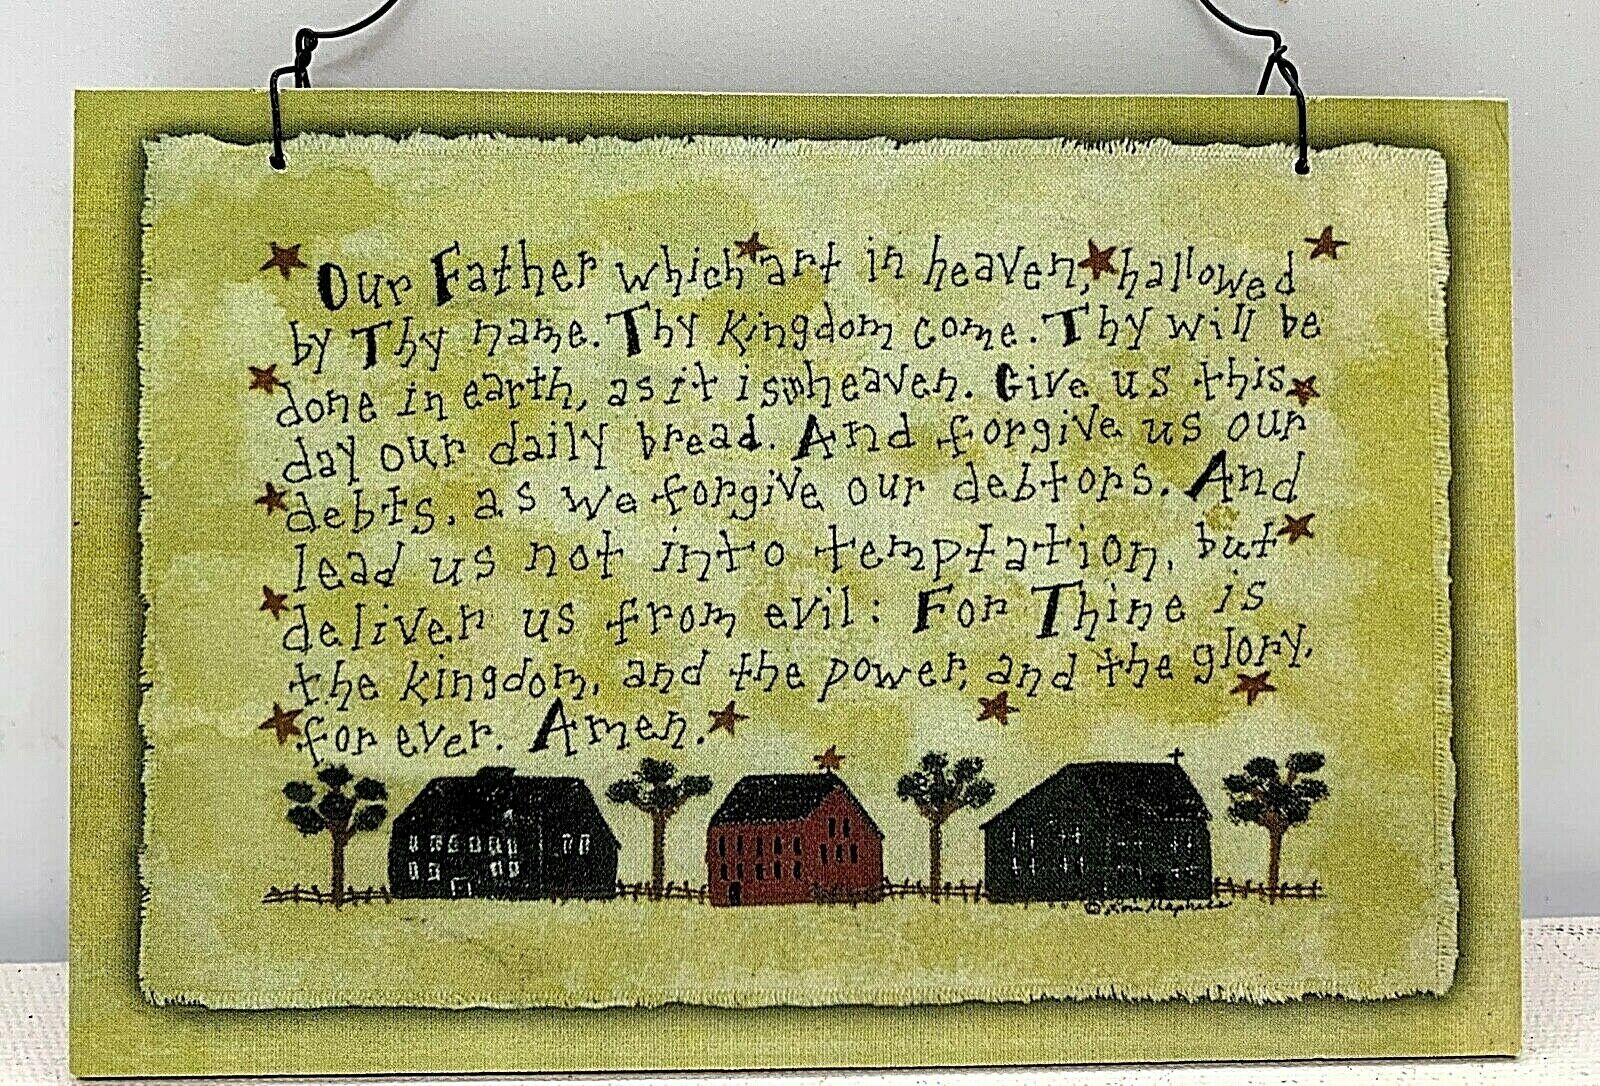 Our Father which art in heaven, hallowed
by Thy name. Thy kingdom come. Thy will be
done in earth, as it is in heaven. Give us this
day our daily bread. And forgive us our
debts, as we forgive our debtors. And
lead us not into temptation, but
deliver us from evil: For Thine is
the kingdom, and the power, and the glory,
for ever. Amen.
©